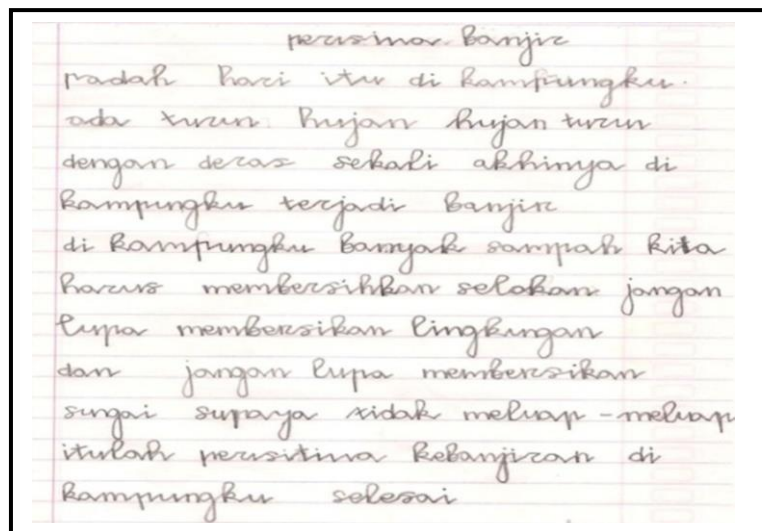 perusinoa Banjir
padah hari itu di kampungku.
ada turun hujan hujan turun
dengan deras sekali akhinya di
kampungku terjadi Banjir
di kampungku Banyak sampah kita
harus membersihkan selokan jangan
lupa membersikan lingkungan
dan jangan lupa membersikan
sungai supaya tidak meluap - meluap
itulah perusitiwa kebanjiran di
kampungku selesai